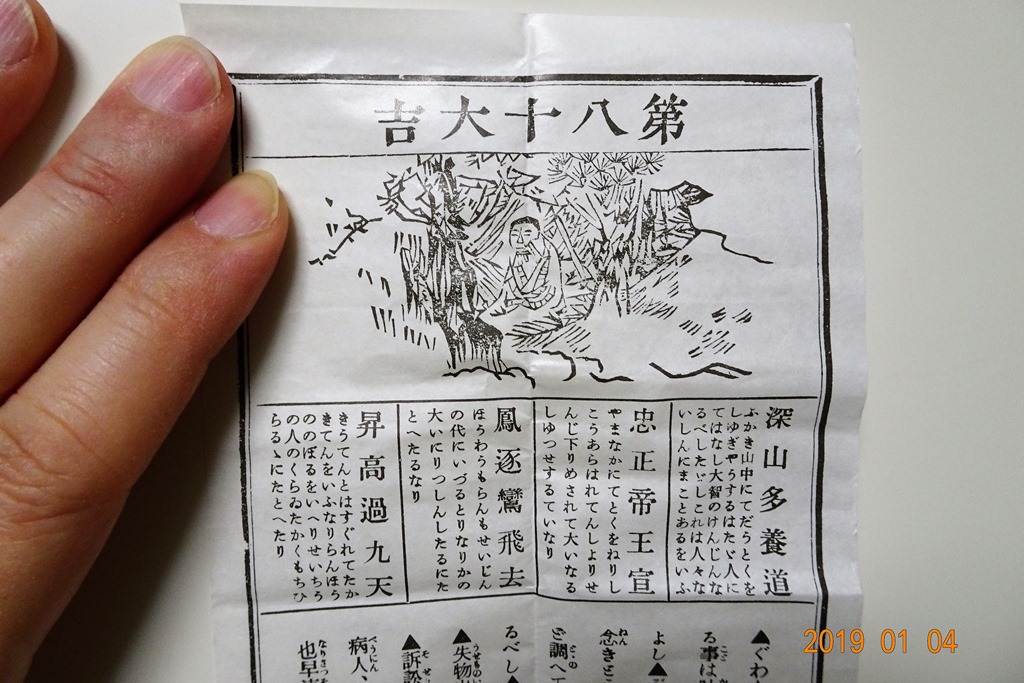 第八十大吉
深山多養道
ふかき山中にてだうとくを
しゆぎやうするはたゞ人に
てはなし大智のけんじんな
るべしたゞしこれは人々な
いしんにまことあるをいふ
忠正帝王宣
やまなかにてとくをねりし
こうあらはれてんしよりせ
んじ下りめされて大いなる
しゆつせするていなり
鳳逐鸞飛去
ほうわうもらんもせいじん
の代にいづるとりなりかの
大いにりつしんしたるにた
とへたるなり
昇高過九天
きうてんとはすぐれてたか
きてんをいふなりらんほう
ののぼるをいへりせいちう
の人のくらゐたかくもちひ
らるゝにたとへたり
▲ぐわ
る事は
よし▲
念きと
と調へ
るべし▲
▲失物
▲訴訟
病人、
也早
2019 01 04